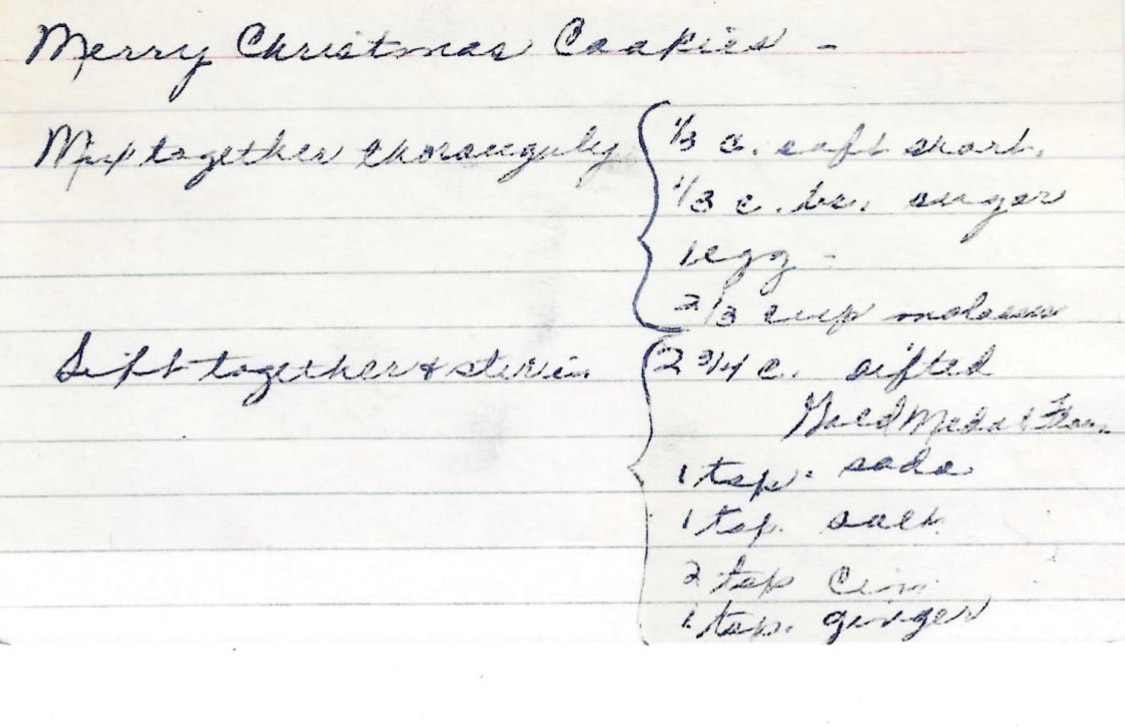 Merry Christmas Cookies -
Mix together thoroughly { 1/3 c. soft short.
1/3 c. br. sugar
1 egg -
2/3 cup molasses
Sift together & stir in { 2 3/4 c. sifted
Gold Medal Flour
1 tsp. soda
1 tsp. salt
2 tsp Cinn
1 tsp. ginger